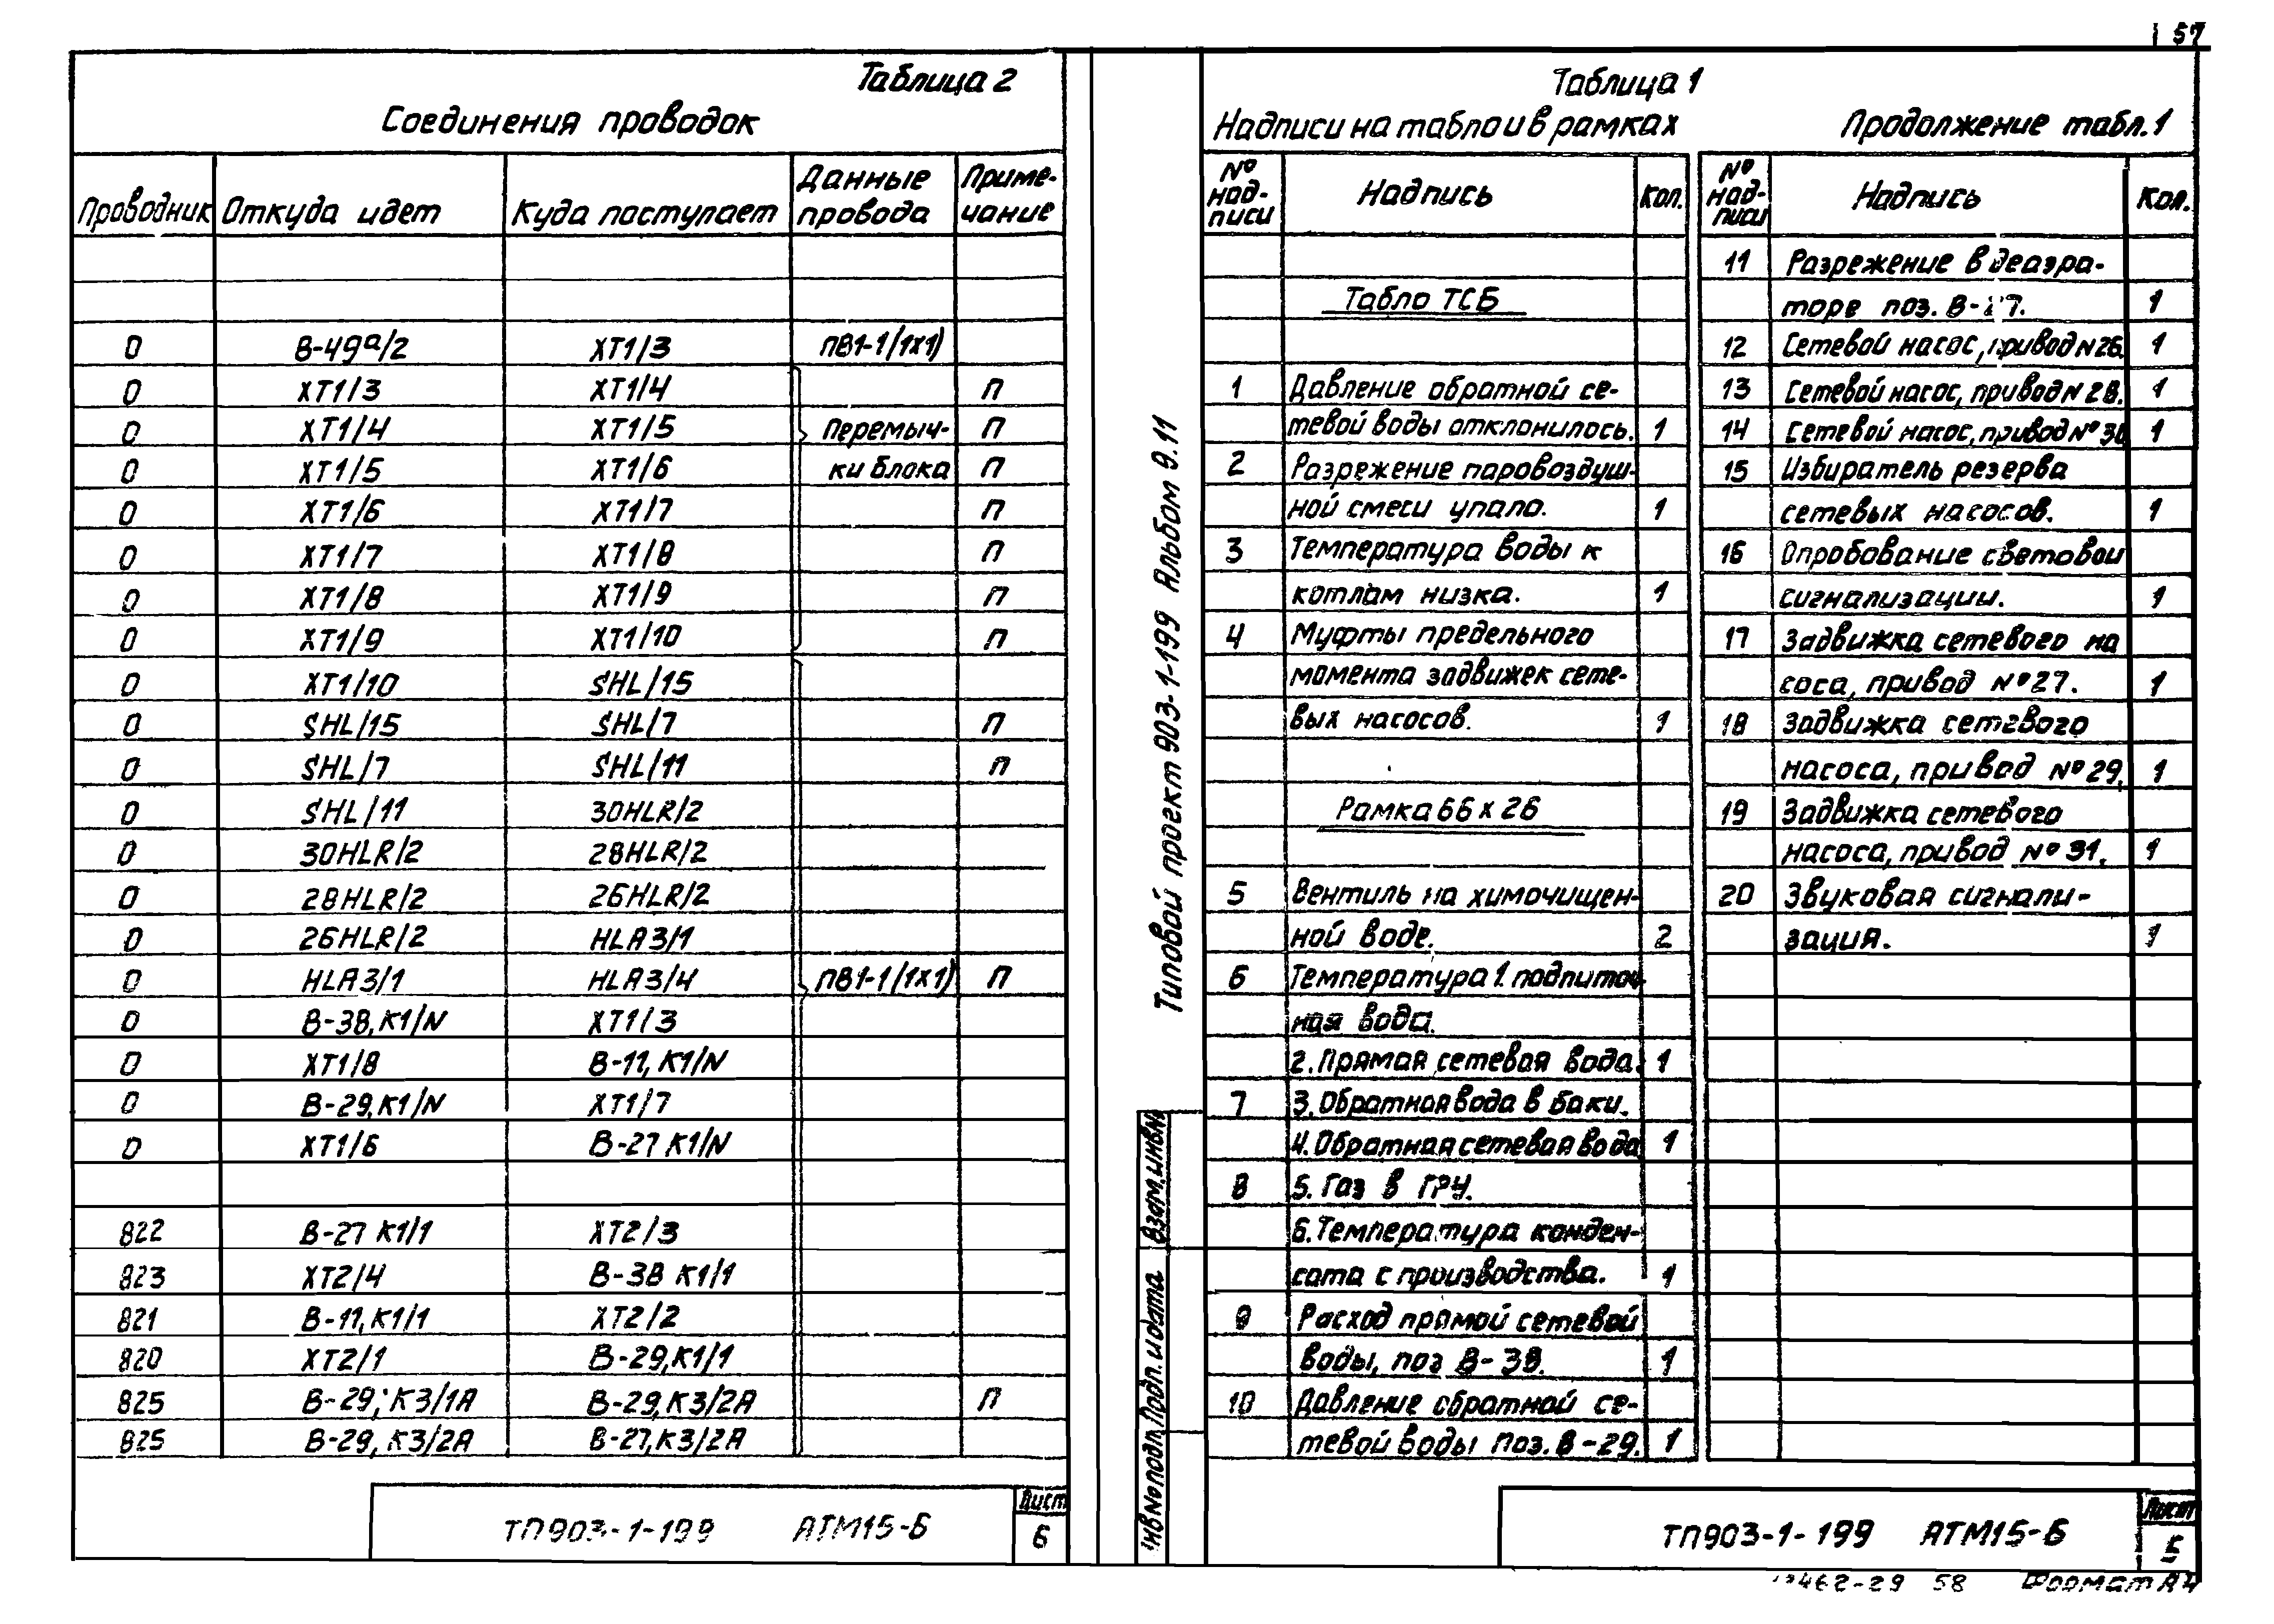 57
Таблица 2
Соединения проводок
Проводник Откуда идет Куда поступает Данные провода Примечание
0 В-49а/2 XT1/3 ПВ1-1/1х1)
0 XT1/3 XT1/4 П
0 XT1/4 XT1/5 Перемыч- П
0 XT1/5 XT1/6 ки блока П
0 XT1/6 XT1/7 П
0 XT1/7 XT1/8 П
0 XT1/8 XT1/9 П
0 XT1/9 XT1/10 П
0 XT1/10 SHL/15
0 SHL/15 SHL/7 П
0 SHL/7 SHL/11 П
0 SHL/11 30HLR/2
0 30HLR/2 28HLR/2
0 28HLR/2 26HLR/2
0 26HLR/2 HLA3/1
0 HLA3/1 HLA3/4 ПВ1-1/1х1) П
0 В-38,К1/N XT1/3
0 XT1/8 В-11,К1/N
0 В-29,К1/N XT1/7
0 XT1/6 В-27 К1/N
822 В-27 К1/1 XT2/3
823 XT2/4 В-38 К1/1
821 В-11,К1/1 XT2/2
820 XT2/1 В-29,К1/1
825 В-29,К3/1А В-29,К3/2А П
825 В-29,К3/2А В-27,К3/2А
ТП903-1-199 АТМ15-Б
Лист
6
Типовой проект 903-1-199 Альбом 9.11
Взам.инв№
Подп. и дата
Инв№подл.
Таблица 1
Надписи на табло и в рамках
№ надписи Надпись Кол.
Табло ТСБ
1 Давление обратной се-
тевой воды отклонилось. 1
2 Разрежение паровоздуш-
ной смеси упало. 1
3 Температура воды к
котлам низка. 1
4 Муфты предельного
момента задвижек сете-
вых насосов. 1
Рамка 66 х 26
5 Вентиль на химочищен-
ной воде. 2
6 Температура 1. подпиточ-
ная вода.
2. Прямая сетевая вода. 1
7 3. Обратная вода в баки.
4. Обратная сетевая вода 1
8 5. Газ в ГРУ.
6. Температура конден-
сата с производства. 1
9 Расход прямой сетевой
воды, поз В-38. 1
10 Давление обратной се-
тевой воды поз. В-29. 1
Продолжение табл. 1
№ надписи Надпись Кол.
11 Разрежение в деаэра-
торе поз. В-27. 1
12 Сетевой насос, привод №26. 1
13 Сетевой насос, привод №28. 1
14 Сетевой насос, привод №30 1
15 Избиратель резерва
сетевых насосов. 1
16 Опробование световой
сигнализации. 1
17 Задвижка сетевого на
соса, привод №27. 1
18 Задвижка сетевого
насоса, привод №29. 1
19 Задвижка сетевого
насоса, привод №31. 1
20 Звуковая сигнали-
зация. 1
ТП903-1-199 АТМ15-Б
Лист
5
58 Формат А4